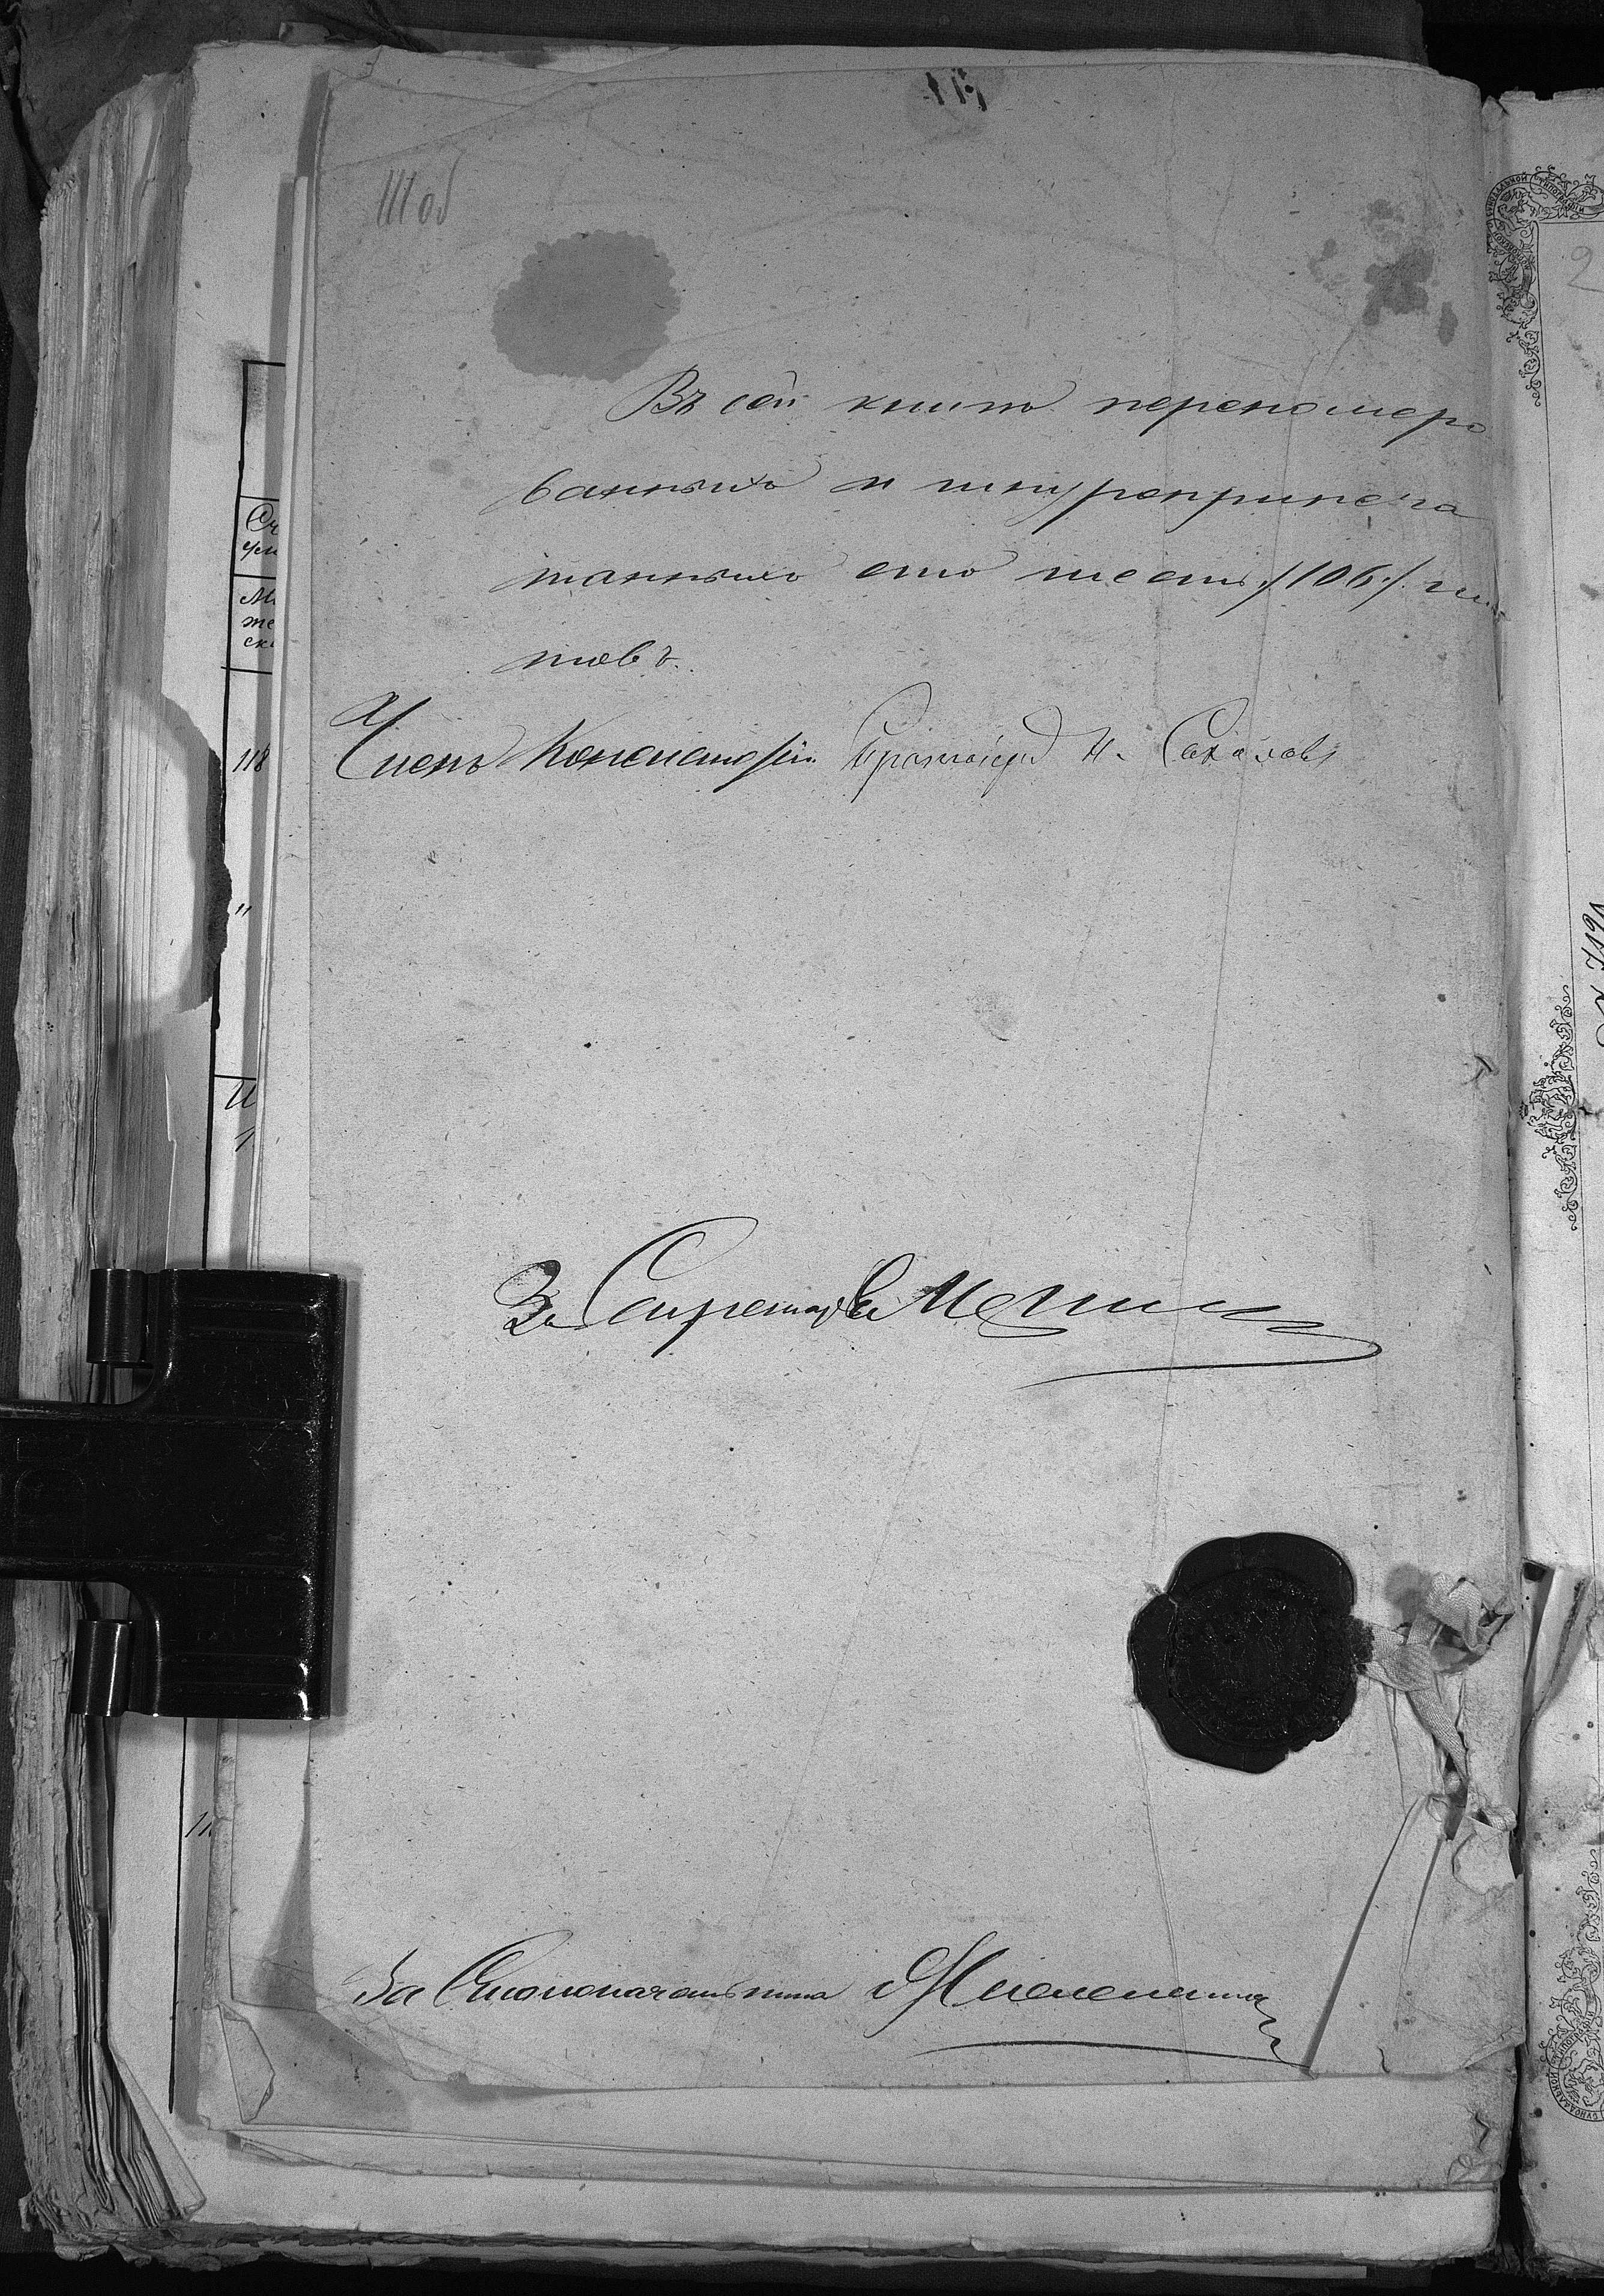 111 об
Въ сей книгѣ перенумеро
ванныхъ и шнуропропеча
танныхъ сто шесть /106/ лис
товъ.
Членъ Консисторіи Протоіерей Н. Соколовъ
За Секретаря
За Столоначальника
118
2